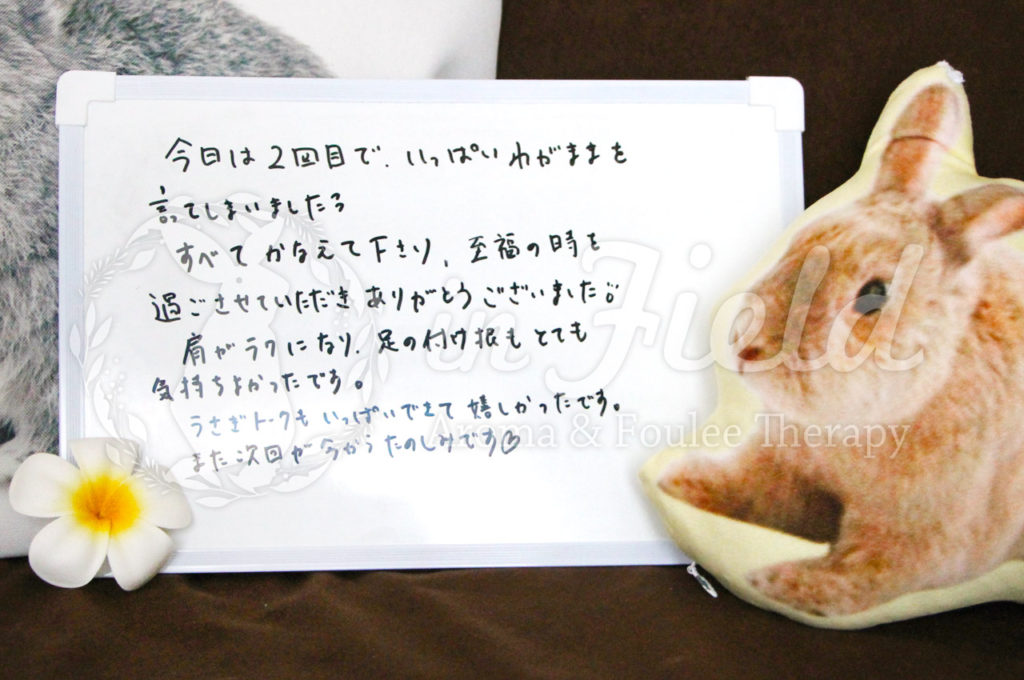 今日は2回目で、いっぱいわがままを
言ってしまいました
すべてかなえて下さり、至福の時を
過ごさせていただきありがとうございました
肩がラクになり、足の付け根もとても
気持ちよかったです。
うさぎトークもいっぱいできて嬉しかったです。
また次回が今からたのしみです♡
in Field
Aroma & Foulee Therapy